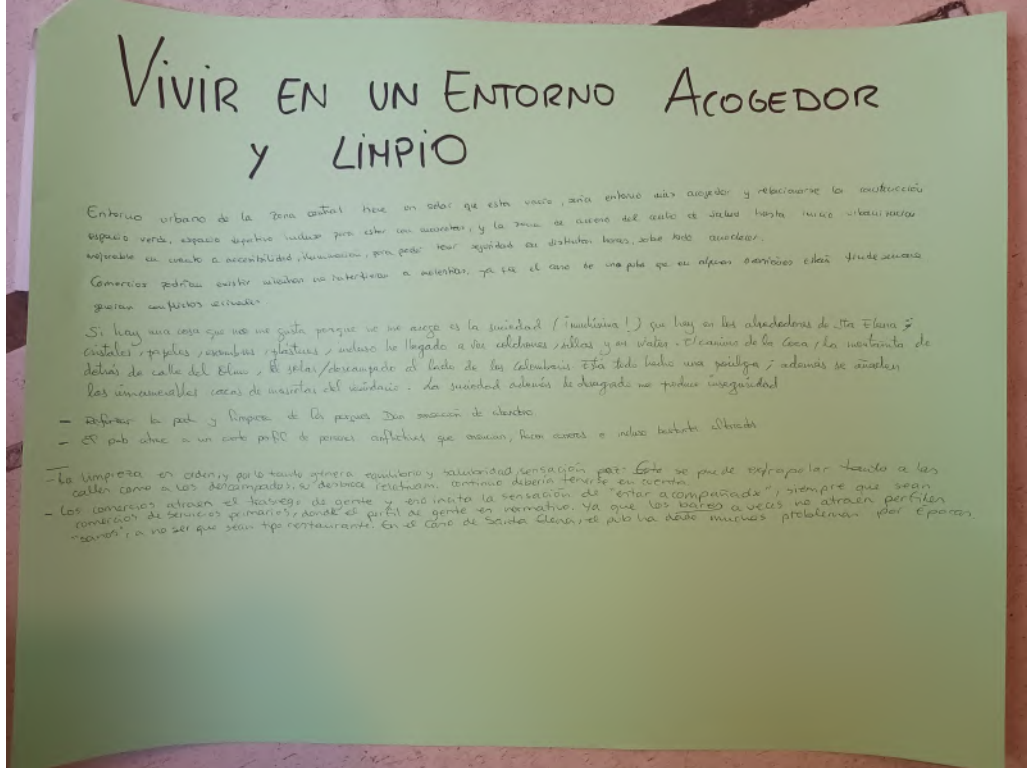 VIVIR EN UN ENTORNO ACOGEDOR
Y LIMPIO
Entorno urbano de la zona central tiene un solar que esta vacío, sería entorno más acogedor y relacionarse la construcción
espacio verde, espacio deportivo incluso para estar con mascotas, y la zona de acceso del centro de salud hasta inicio urbanización
mejorable en cuanto a accesibilidad, iluminación, para poder tener seguridad en distintas horas, sobre todo anochecer.
Comercios podrían existir mientras no interfieran a molestias, ya que el caso de un pub que en algunas ocasiones están finde semana
generan conflictos
Si hay una cosa que no me gusta porque no me acoge es la suciedad (¡muchísima!) que hay en los alrededores de Sta Elena;
cristales, papeles, escombros, plásticos, incluso he llegado a ver colchones, sillas y un water. El camino de la Coca, la montañita de
detrás de calle del Olmo, el solar/descampado al lado de los Columbaris. Está todo hecho una pocilga; además se añaden
las innumerables cacas de mascotas del vecindario. La suciedad además de desagrado me produce inseguridad
- Reforzar la poda y limpieza de los parques. Dan sensación de abandono
- El pub atrae a un cierto perfil de personas conflictivas que ensucian, hacen carreras e incluso bastante altercados
- La limpieza es orden, y por lo tanto genera equilibrio y salubridad, sensación paz. Esto se puede extrapolar tanto a las
calles como a los descampados, el desbroce relativam. continuo debería tenerse en cuenta.
- Los comercios atraen el trasiego de gente y eso incita la sensación de "estar acompañadx", siempre que sean
comercios de servicios primarios, donde el perfil de gente es normativo. Ya que los bares a veces no atraen perfiles
"sanos", a no ser que sean tipo restaurante. En el caso de Santa Elena, el pub ha dado muchos problemas por épocas.